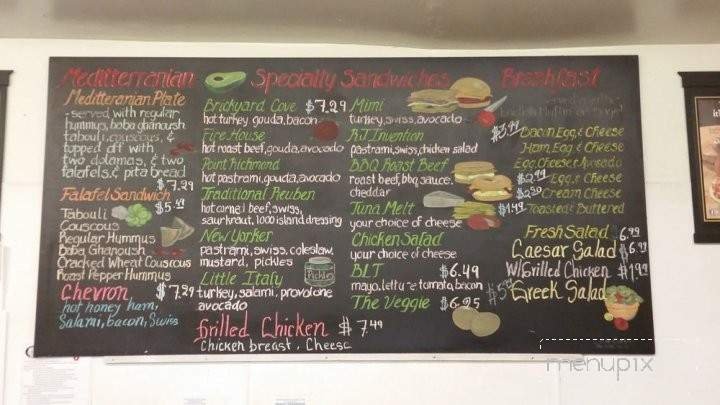 Mediterranian
Mediteranian Plate
-served with regular
hummus, baba ghanoush
tabouli, couscous, &
topped off with
two dolamas, & two
falafels, & pita bread
$7.99
Falafel Sandwich
$5.
Tabouli
Couscous
Regular Hummus
Baba Ghanoush
Cracked Wheat Couscous
Roast Pepper Hummus
Chevron $7.29
hot honey ham,
Salami, bacon, Swiss
Specialty Sandwiches
Brickyard Cove $7.29
hot turkey, gouda, bacon
Fire House
hot roast beef, gouda, avocado
Point Richmond
hot pastrami, gouda, avocado
Traditional Reuben
hot corned beef, swiss,
saurkraut, 1000 island dressing
New Yorker
pastrami, swiss, coleslaw,
mustard, pickles
Pickles
Little Italy
turkey, salami, provolone
avocado
Grilled Chicken $7.49
Chicken breast, Cheese
Mimi
turkey, swiss, avocado
RJ Invention
pastrami, swiss, chicken salad
BBQ Roast Beef
roast beef, bbq sauce,
cheddar
Tuna Melt
your choice of cheese
Chicken Salad
your choice of cheese
BLT $6.49
mayo, lettuce tomato, bacon
The Veggie $6.25
Breakfast
served on either
English Muffin or Bagel
$3.99 Bacon Egg & Cheese
Ham, Egg & Cheese
Egg, Cheese & Avocado
$2.99 Egg & Cheese
$2.50 Cream Cheese
$1.49 Toasted & Buttered
Fresh Salad 6.99
Caesar Salad $6.99
W/Grilled Chicken
Greek Salad
menupix